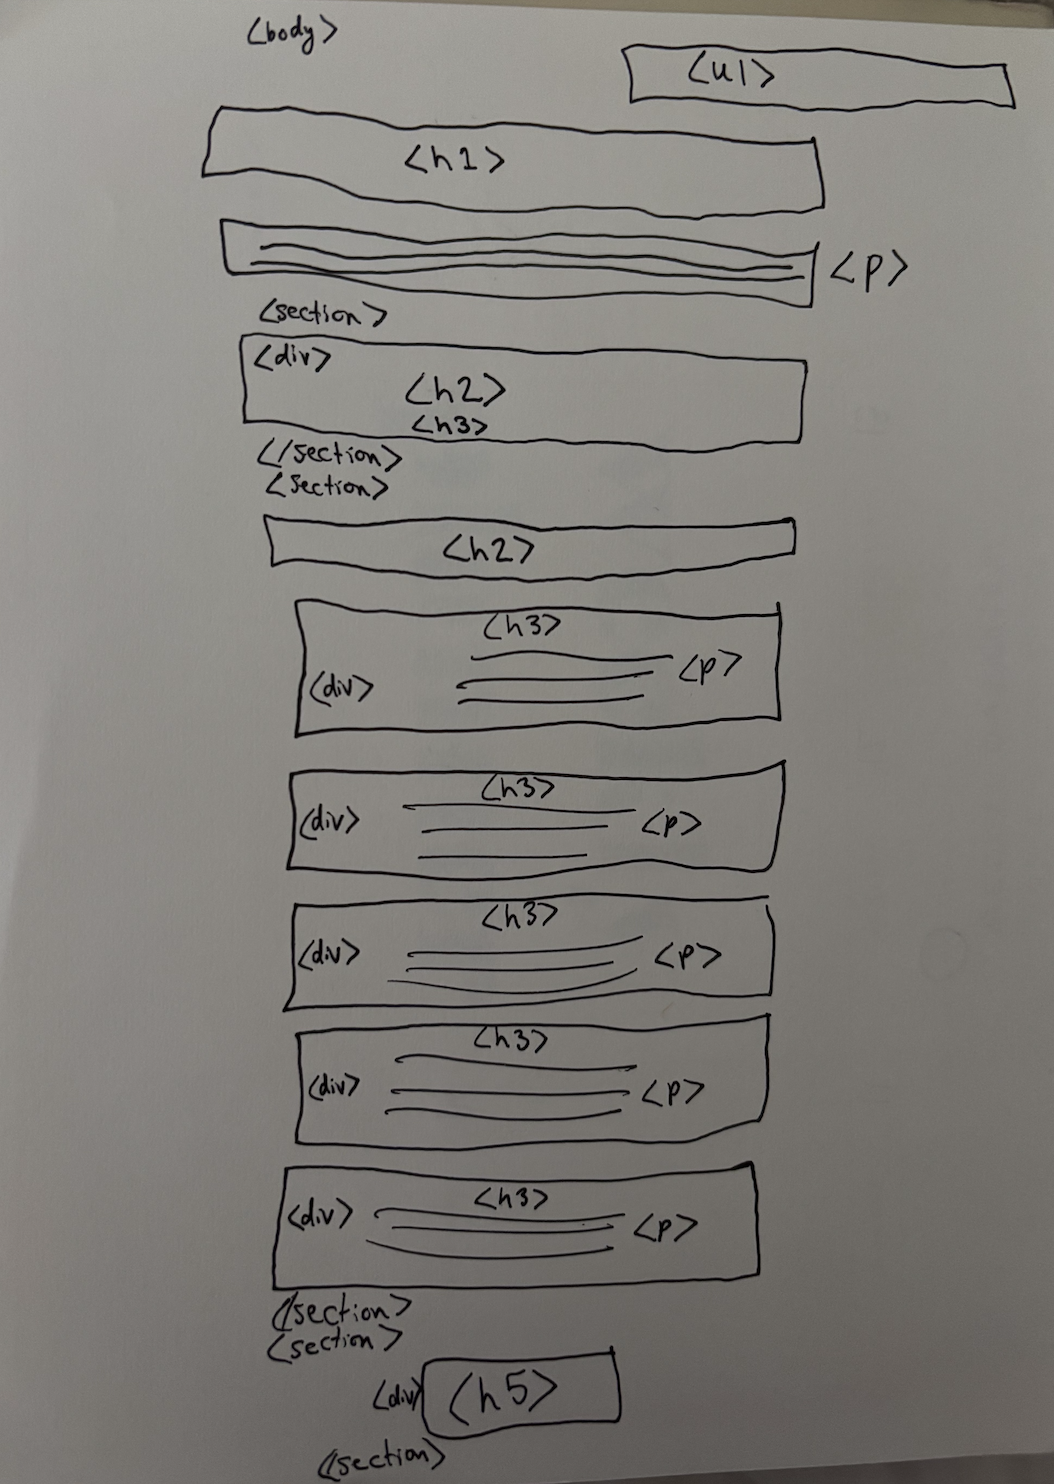 <body>
<ul>
<h1>
<p>
<section>
<div>
<h2>
<h3>
<//section>
<section>
<h2>
<h3>
<p>
<div>
<h3>
<div>
<p>
<h3>
<div>
<p>
<h3>
<div>
<p>
<h3>
<div>
<p>
</section>
<section>
<div>
<h5>
</section>